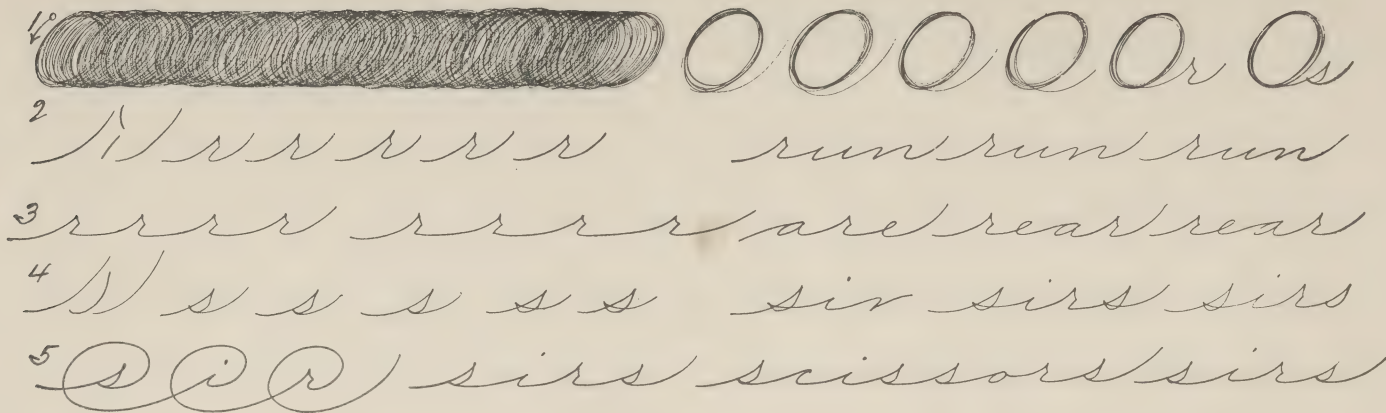 1 O O O O O r O s
2 r r r r r run run run
3 r r r r r r r r are rear rear
4 s s s s s sir sirs sirs
5 s i r sirs scissors sirs